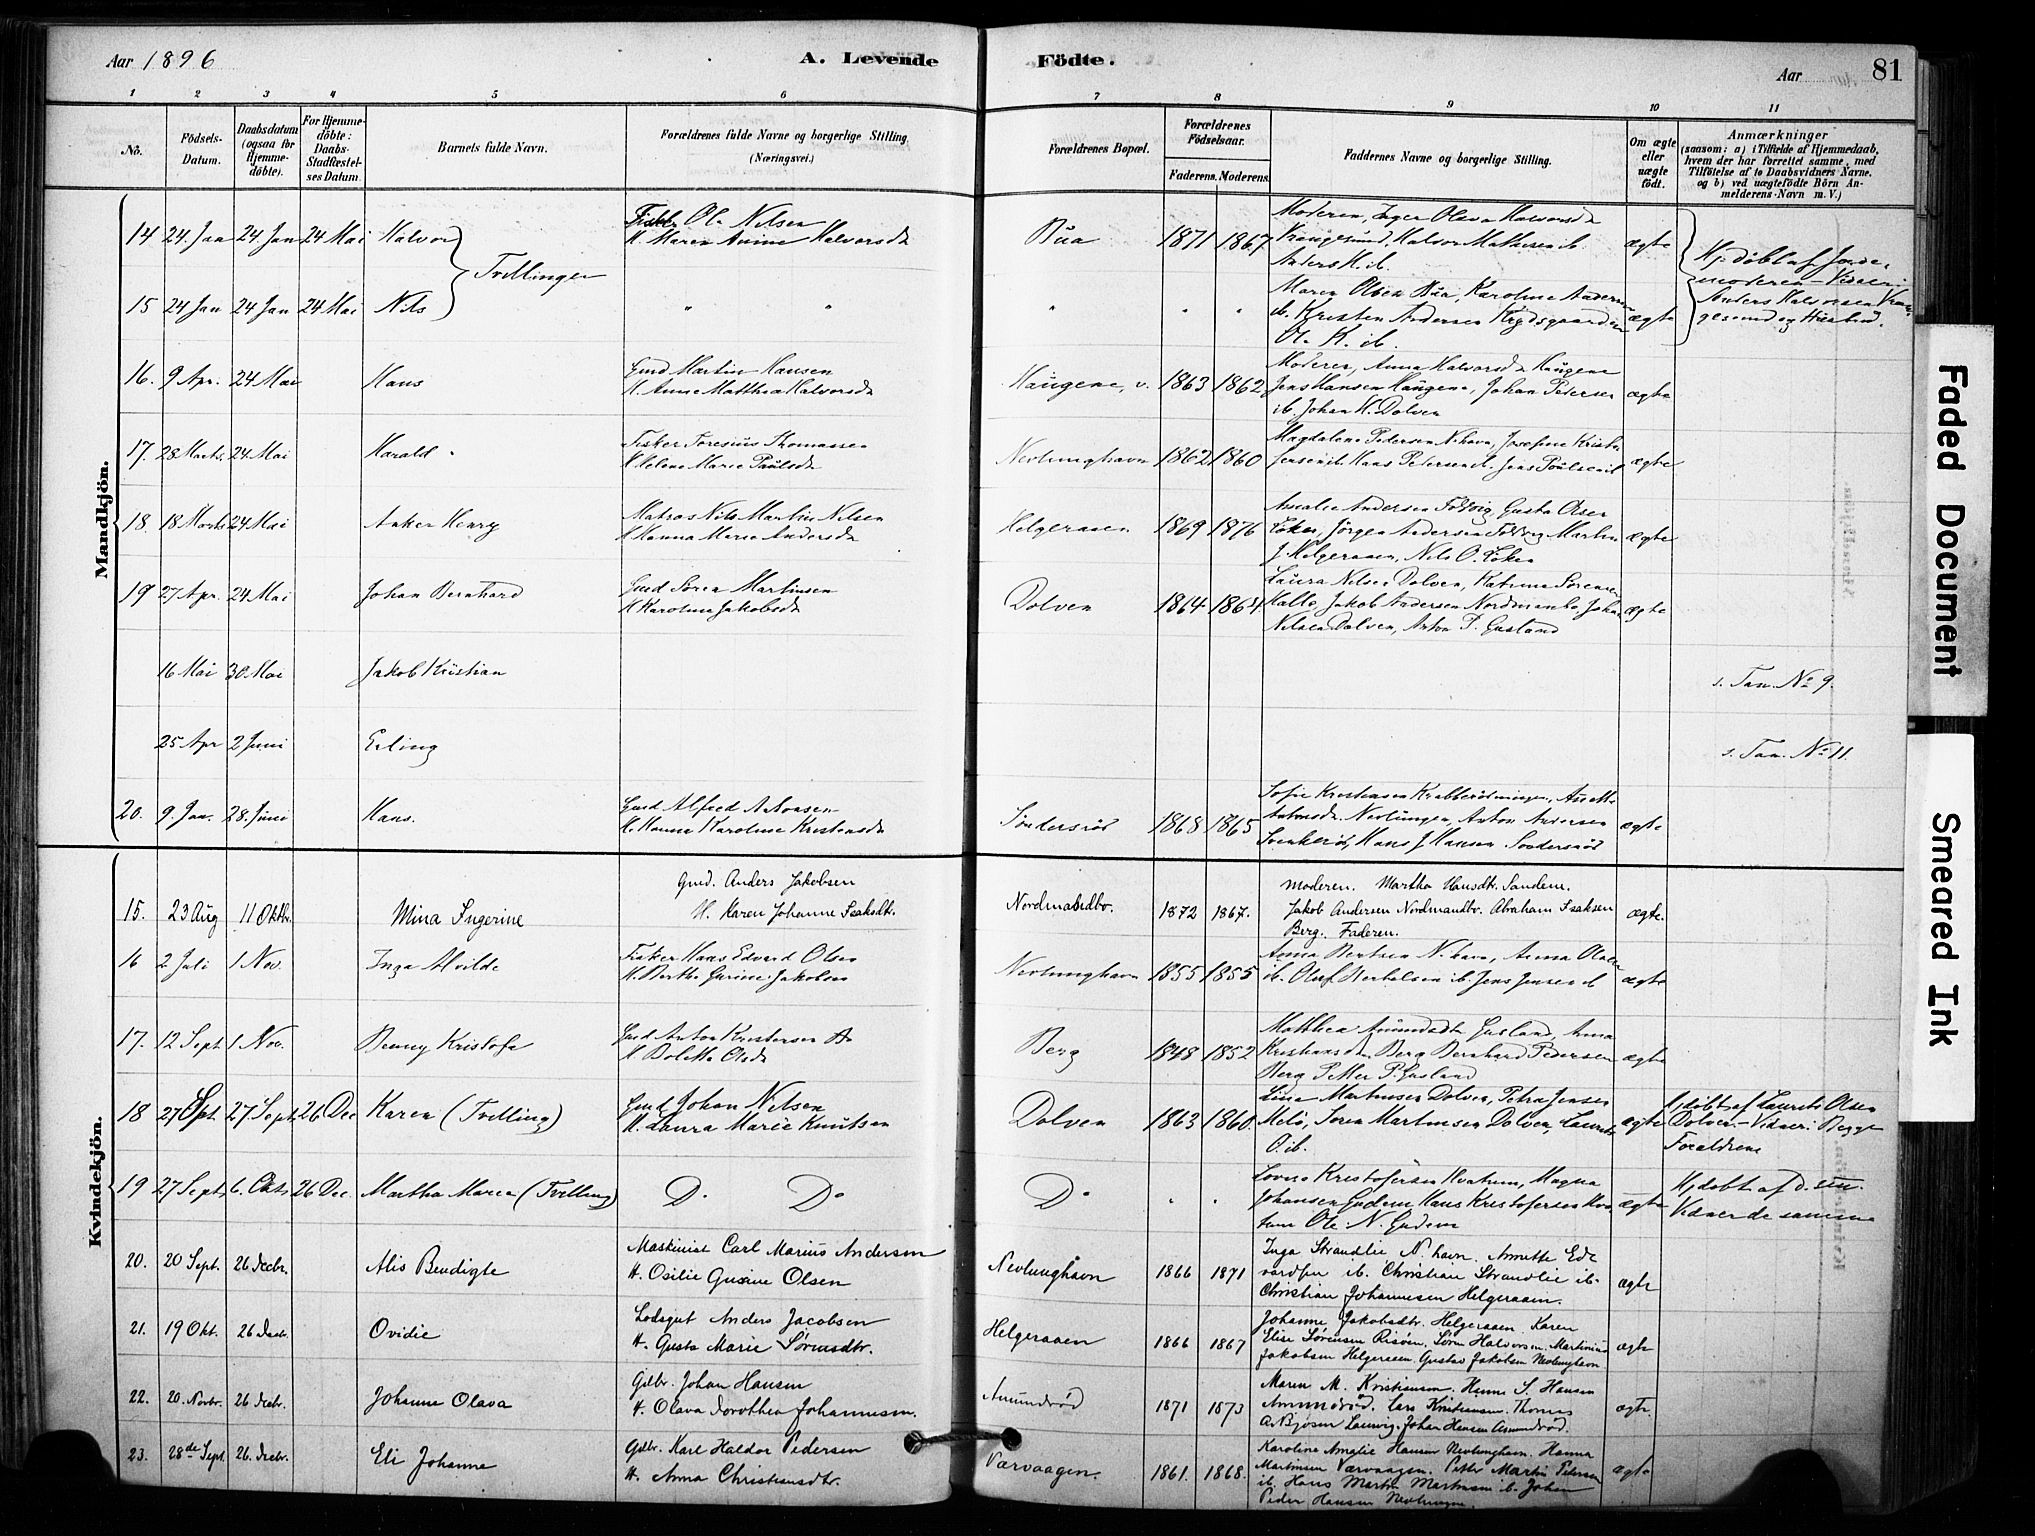 Aar 1896
A. Levende Födte.
Aar 81
1 2 3 4 5 6 7 8 9 10 11
No. Födsels-Datum. Daabsdatum (ogsaa for Hjemmedöbte). For Hjemmedöbte: Daabs-Stadfæstelses Datum. Barnets fulde Navn. Forældrenes fulde Navne og borgerlige Stilling. (Næringsvei.) Forældrenes Bopæl. Forældrenes Födselsaar. Faderens. Moderens. Faddernes Navne og borgerlige Stilling. Om ægte eller uægte födt. Anmærkninger (saasom: a) i Tilfælde af Hjemmedaab, hvem der har forrettet samme, med Tilföielse af to Daabsvidners Navne. og b) ved uægtefödte Börn Anmelderens Navn m. V.)
Mandkjön.
14 24. Jan 24 Jan 24 Mai Halvor Tvillinger Fisker Ole Nilsen
H. Maren Anine Halvorsdr Bua 1871 1867 Moderen, Inger Olava Halvorsdr
Krangesund, Halvor Mathisen ib.
Anders H. ib. ægte Hj. døbt af Jorde-
moderen - Vidner:
Anders Halvorsen Kran-
gesund og Hustru.
15 24 Jan 24 Jan 24 Mai Nils " " " " " Maren Olsen Bua, Karoline Andersen
ib. Kristen Andersen Krydsgaarden
Ole K. ib. ægte
16. 9 Apr. 24 Mai Hans Gmd Martin Hansen
H. Anne Matthea Halvorsdr Haugene, v. 1863 1862 Moderen, Anna Halvorsdr Haugene
Jens Hansen Haugene, Johan Pedersen
ib. Johan H. Dolven ægte
17. 28 Marts 24 Mai Harald Fisker Toresius Thomassen
H. Helene Marie Paulsdr Nevlunghavn 1862 1860 Magdalene Pedersen N.havn, Josefine Kristen
Jensen ib. Hans Petersen ib. Jens Poulsen ib ægte
18. 18 Marts 24 Mai Anker Henry Matros Nils Martin Nilsen
H. Hanna Marie Andersdr Helgeraaen 1869 1876 Amalie Andersen Foldvig, Gusta Olsen
Eoken, Jörgen Andersen Foldvig Martin
J. Helgeraaen, Nils O. Eoken ægte
19 27 Apr. 24 Mai Johan Bernhard Gmd Sören Martinsen
H. Karoline Jakobsdr Dolven 1864 1864 Laura Nilsen Dolven, Katrine Sörensen
Hallo, Jakob Andersen Nordmanbo, Johan
Nilsen Dolven, Anton P. Gusland ægte
16 Mai 30 Mai Jakob Kristian s. Tan. No 9.
25 Apr 2 Juni Erling s. Tan. No 11.
20. 9. Jan. 28. Juni Hans. Gmd Alfred Antonsen
H. Hanna Karoline Kristensdr Söndersröd 1868 1865 Sofie Kristensen Krabberödningen, Anette
Antonsdr. Nevlungen, Anton Andersen
Svenkeröd, Hans J Hansen Söndersröd ægte
Kvindekjön.
15. 23 Aug 11 Oktbr. Mina Ingerine Gmd. Anders Jakobsen
H. Karen Johanne Isaksdtr. Nordmandbo. 1872 1867. Moderen. Martha Hansdtr. Sandem.
Jakob Andersen Nordmandbo. Abraham Isaksen
Berg. Faderen. ægte.
16 2 Juli 1 Nov. Inga Alvilde Fisker Hans Edvard Olsen
H. Berthe Gurine Jakobsen Nevlunghavn 1855 1855 Anna Bertsen N.havn, Anna Olsen
ib. Oluf Bertelsen ib. Jens Jensen ib ægte
17. 12 Sept 1 Nov. Benny Kristofa Gmd Anton Kristensen
H. Bolette Olsdr Berg 1848 1852 Matthea Amundsdr Gusland, Anna
Kristiansdr. Berg Bernhard Pedersen
Berg Petter P. Gusland ægte
18 27 Spt. 27 Sept 26 Dec Karen (Tvilling) Gmd Johan Nilsen
H. Laura Marie Knutsen Dolven 1863 1860 Lina Martinsen Dolven, Petra Jensen
Melö, Sören Martinsen Dolven, Laurits
O. ib. ægte Hj. døbt af Laurits Olsen
Dolven - Vidner: Begge
Forældrene
19 27 Sept 6. Okt. 26 Dec. Martha Maren (Tvilling) Do Do Do " " Lovise Kristofersen Kvatrum, Magna
Johansen Gudem Hans Kristofersen Kva
trum Ole N. Gudem ægte Hj. døbt af d. sam.
Vidner de samme
20. 20 Sept. 26 Decbr. Alis Bendigte Maskinist Carl Marius Andersen
H. Osilie Gusine Olsen Nevlunghavn 1866 1871 Inga Strandlie N.havn. Annette Ed-
vardsen ib. Christian Strandlie ib.
Christian Johannesen Helgeraaen. ægte
21. 19 Okt. 26 Decbr. Ovidie Lodsgut Anders Jacobsen
H. Gusta Marie Sörensdtr. Helgeraaen 1866 1867 Johanne Jakobsdtr. Helgeraaen. Karen
Elise Sörensen Risöen. Sören Halvorsen. Martinius
Jakobsen Helgeraaen. Gustav Jakobsen Nevlunghavn ægte
22. 20. Novbr. 26 Decbr. Johanne Olava Gdbr. Johan Hansen
H. Olava Dorothea Johannesen. Amundröd 1871 1873 Maren M. Kristiansen. Hanne S. Hansen
Amundröd. Lars Kristiansen. Thomas
A. Bjösen Laurvig. Johan Hansen Amundröd. ægte.
23. 28de Sept. 26. Decbr. Eli Johanne Gdbr. Karl Haldor Pedersen
H. Anna Christiansdtr. Værvaagen. 1861. 1868. Karoline Amalie Hansen Nevlunghavn. Hanna
Martinsen Værvaagen. Petter Martin Petersen
ib. Hans Martin Martinsen ib. Johan
Peder Hansen Nevlungen. ægte
Faded Document
Smeared Ink